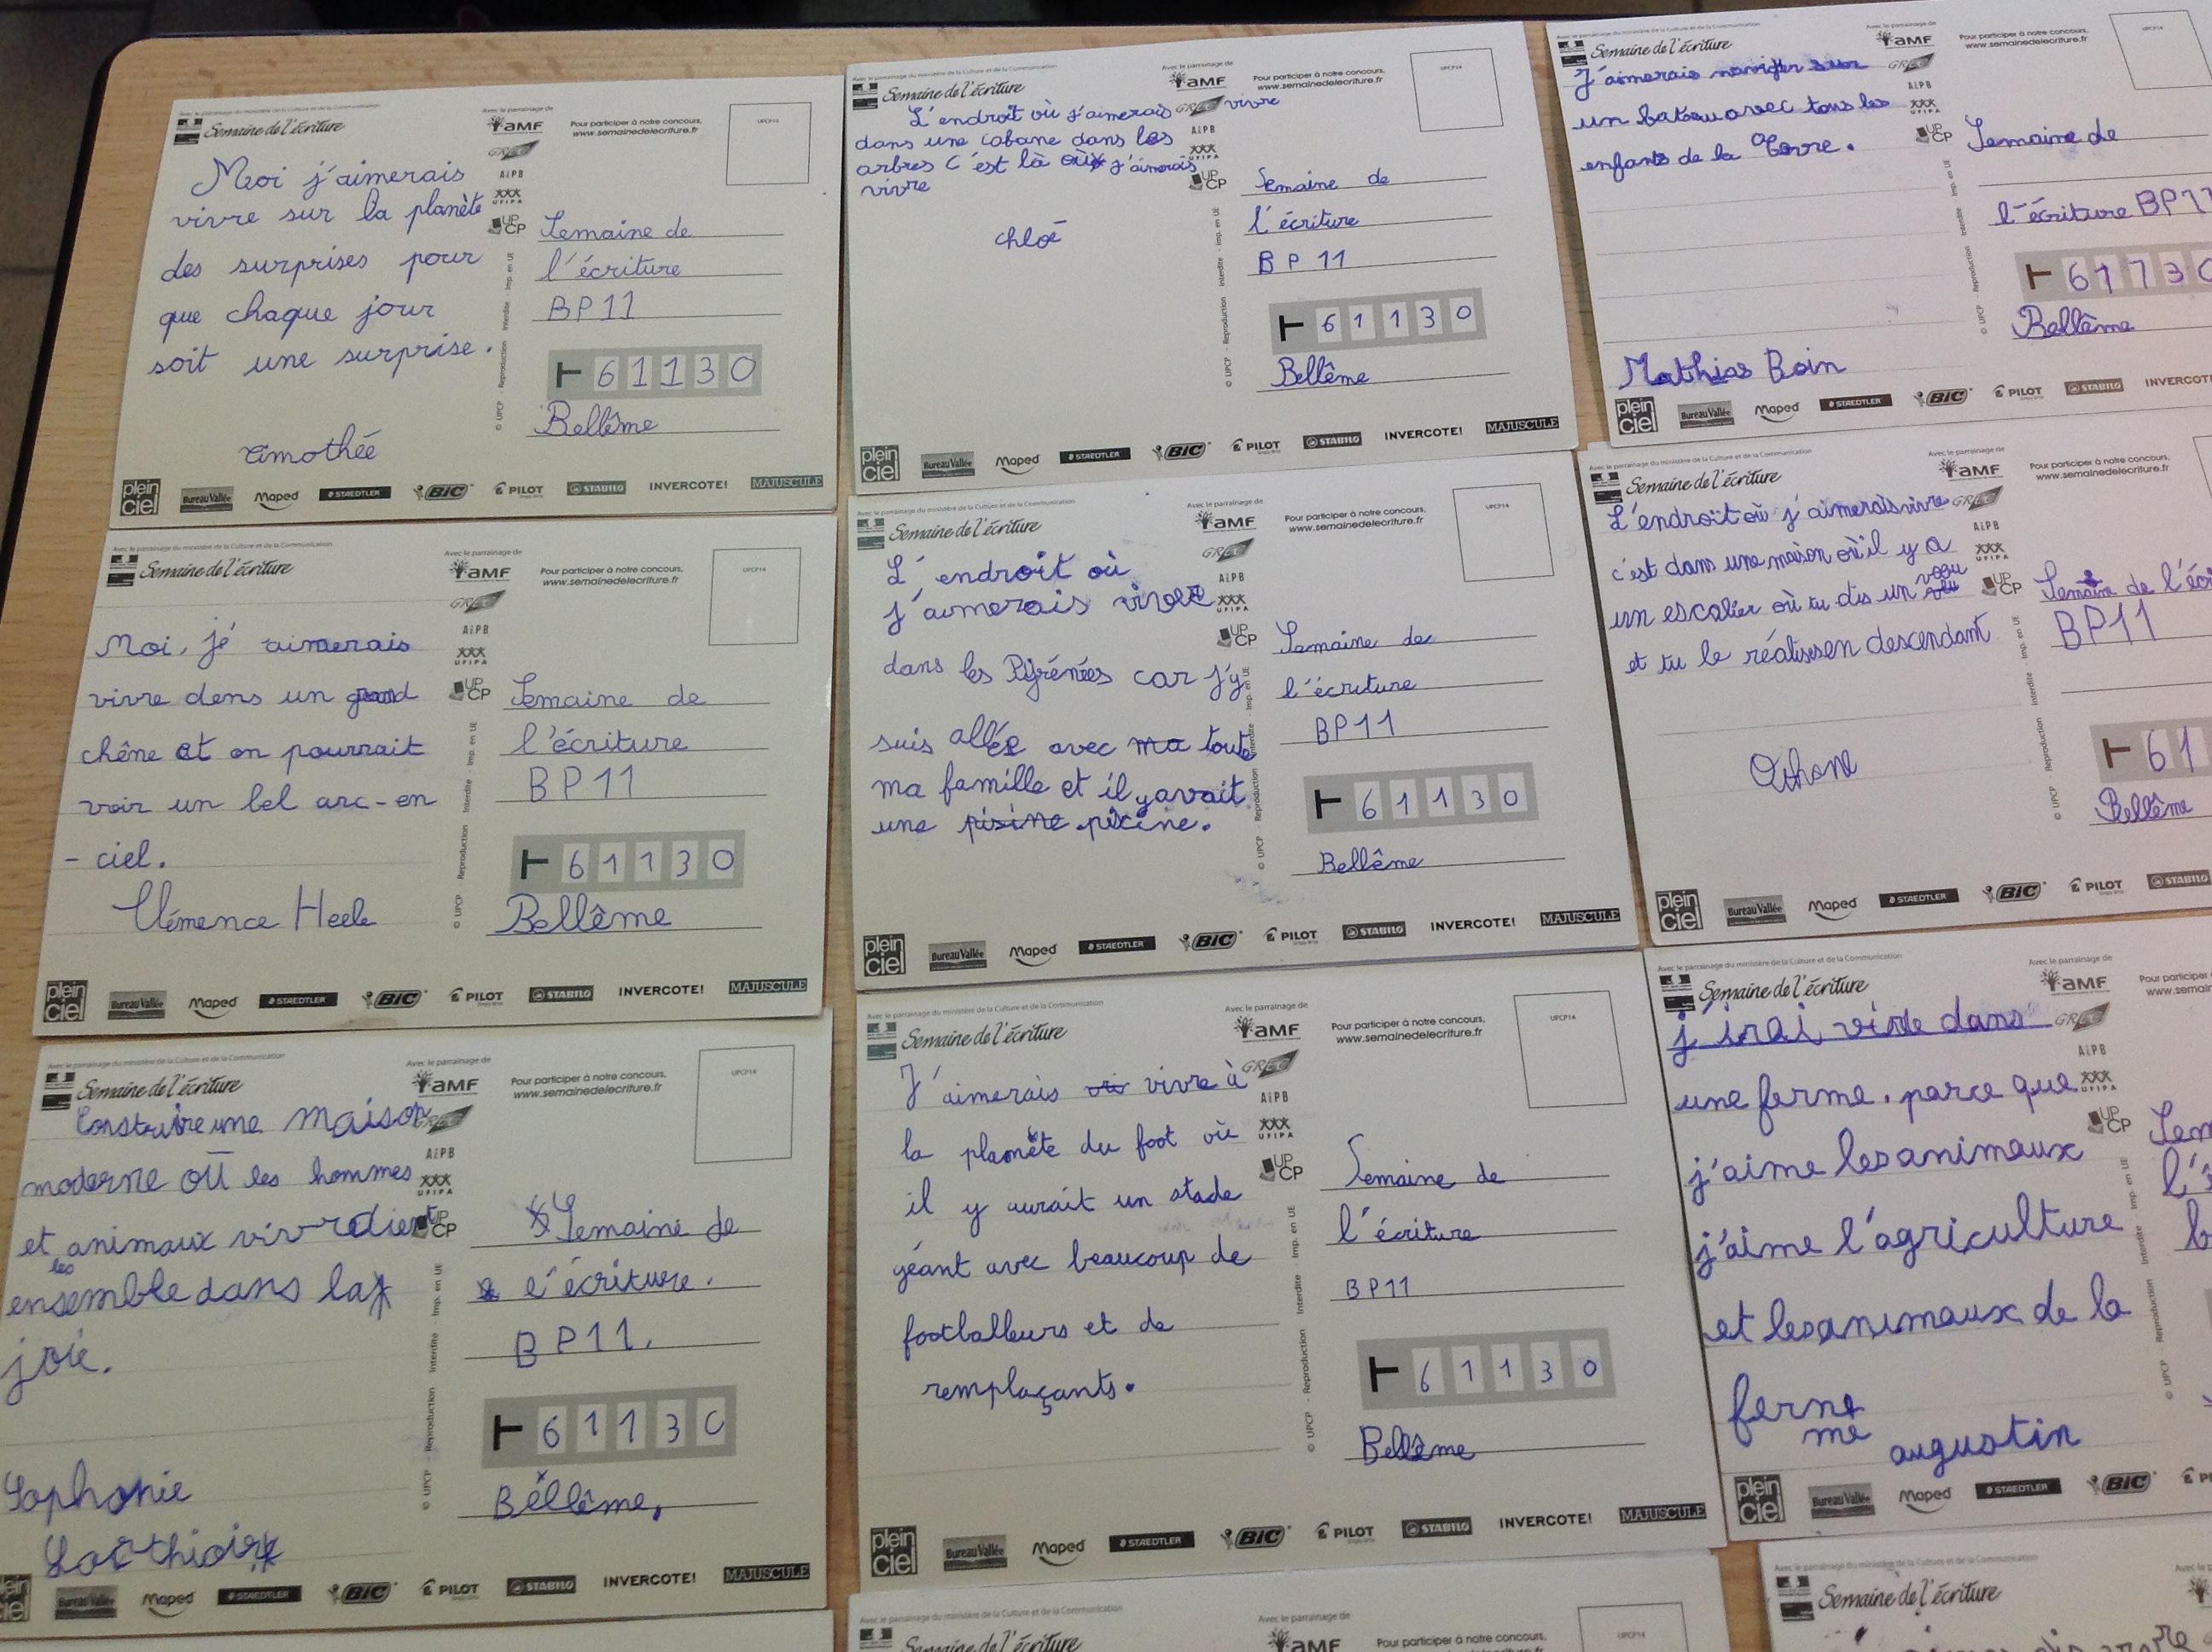 Avec le parrainage du ministère de la Culture et de la Communication
Semaine de l'écriture
Avec le parrainage de
AMF
GREC
AIPB
UFIPA
UPCP
Pour participer à notre concours,
www.semainedelecriture.fr
UPCP14
Moi j'aimerais
vivre sur la planète
des surprises pour
que chaque jour
soit une surprise.
Semaine de
l'écriture
BP11
61130
Bellême
© UPCP - Reproduction Interdite - Imp. en UE
plein ciel
Bureau Vallée
Maped
STAEDTLER
BIC
PILOT
STABILO
INVERCOTE!
MAJUSCULE
Avec le parrainage du ministère de la Culture et de la Communication
Semaine de l'écriture
Avec le parrainage de
AMF
GREC
AIPB
UFIPA
UPCP
Pour participer à notre concours,
www.semainedelecriture.fr
UPCP14
L'endroit où j'aimerais vivre
dans une cabane dans les
arbres C'est là où j'aimerais
vivre
chloé
Semaine de
l'écriture
BP 11
61130
Bellême
© UPCP - Reproduction Interdite - Imp. en UE
plein ciel
Bureau Vallée
Maped
STAEDTLER
BIC
PILOT
STABILO
INVERCOTE!
MAJUSCULE
Semaine de l'écriture
Avec le parrainage de
AMF
GREC
AIPB
UFIPA
UPCP
Pour participer à notre concours,
www.semainedelecriture.fr
UPCP14
J'aimerais navigter sur
un bateau avec tous les
enfants de la Terre.
Mathias Boin
Semaine de
l'écriture BP11
61730
Bellême
© UPCP - Reproduction Interdite - Imp. en UE
plein ciel
Bureau Vallée
Maped
STAEDTLER
BIC
PILOT
STABILO
INVERCOTE!
Avec le parrainage du ministère de la Culture et de la Communication
Semaine de l'écriture
Avec le parrainage de
AMF
GREC
AIPB
UFIPA
UPCP
Pour participer à notre concours,
www.semainedelecriture.fr
UPCP14
Moi, je aimerais
vivre dens un grand
chêne et on pourrait
voir un bel arc-en
-ciel.
Clémence Heele
Semaine de
l'écriture
BP11
61130
Bellême
© UPCP - Reproduction Interdite - Imp. en UE
plein ciel
Bureau Vallée
Maped
STAEDTLER
BIC
PILOT
STABILO
INVERCOTE!
MAJUSCULE
Avec le parrainage du ministère de la Culture et de la Communication
Semaine de l'écriture
Avec le parrainage de
AMF
GREC
AIPB
UFIPA
UPCP
Pour participer à notre concours,
www.semainedelecriture.fr
UPCP14
L'endroit où
j'aimerais vivre
dans les Pyrénées car j'y
suis allée avec ma toute
ma famille et il y avait
une pisine piscine.
Semaine de
l'écriture
BP11
61130
Bellême
© UPCP - Reproduction Interdite - Imp. en UE
plein ciel
Bureau Vallée
Maped
STAEDTLER
BIC
PILOT
STABILO
INVERCOTE!
MAJUSCULE
Avec le parrainage du ministère de la Culture et de la Communication
Semaine de l'écriture
Avec le parrainage de
AMF
GREC
AIPB
UFIPA
UPCP
Pour participer à notre concours,
www.semainedelecriture.fr
UPCP14
L'endroit où j'aimerais vivre
c'est dans une maison où il y a
un escalier où tu dis un voeu
et tu le réalises en descendant
Semaine de l'écri
BP11
61
Bellême
© UPCP - Reproduction Interdite - Imp. en UE
plein ciel
Bureau Vallée
Maped
STAEDTLER
BIC
PILOT
STABILO
Avec le parrainage du ministère de la Culture et de la Communication
Semaine de l'écriture
Avec le parrainage de
AMF
GREC
AIPB
UFIPA
UPCP
Pour participer à notre concours,
www.semainedelecriture.fr
UPCP14
Construire une maison
moderne où les hommes
et les animaux vivraient
ensemble dans la
joie.
Semaine de
l'écriture.
BP11.
61130
Bellême.
© UPCP - Reproduction Interdite - Imp. en UE
ciel
Bureau Vallée
Maped
STAEDTLER
BIC
PILOT
STABILO
INVERCOTE!
MAJUSCULE
Avec le parrainage du ministère de la Culture et de la Communication
Semaine de l'écriture
Avec le parrainage de
AMF
GREC
AIPB
UFIPA
UPCP
Pour participer à notre concours,
www.semainedelecriture.fr
UPCP14
J'aimerais vri vivre à
la planète du foot où
il y aurait un stade
géant avec beaucoup de
footballeurs et de
remplaçants.
Semaine de
l'écriture
BP11
61130
Bellême
© UPCP - Reproduction Interdite - Imp. en UE
plein ciel
Bureau Vallée
Maped
STAEDTLER
BIC
PILOT
STABILO
INVERCOTE!
MAJUSCULE
Avec le parrainage du ministère de la Culture et de la Communication
Semaine de l'écriture
Avec le parrainage de
AMF
GREC
AIPB
UFIPA
UPCP
Pour participer
www.semain
j'irai vivre dans
une ferme. parce que
j'aime les animaux
j'aime l'agriculture
et les animaux de la
ferme
me
augustin
Sem
© UPCP - Reproduction Interdite - Imp. en UE
plein ciel
Bureau Vallée
Maped
STAEDTLER
BIC
Avec le parrainage du ministère de la Culture et de la Communication
Semaine de l'écriture
Avec le parrainage de
AMF
Pour participer à notre concours,
UPCP14
Avec le parrainage du ministère de la Culture et de la Communication
Semaine de l'écriture